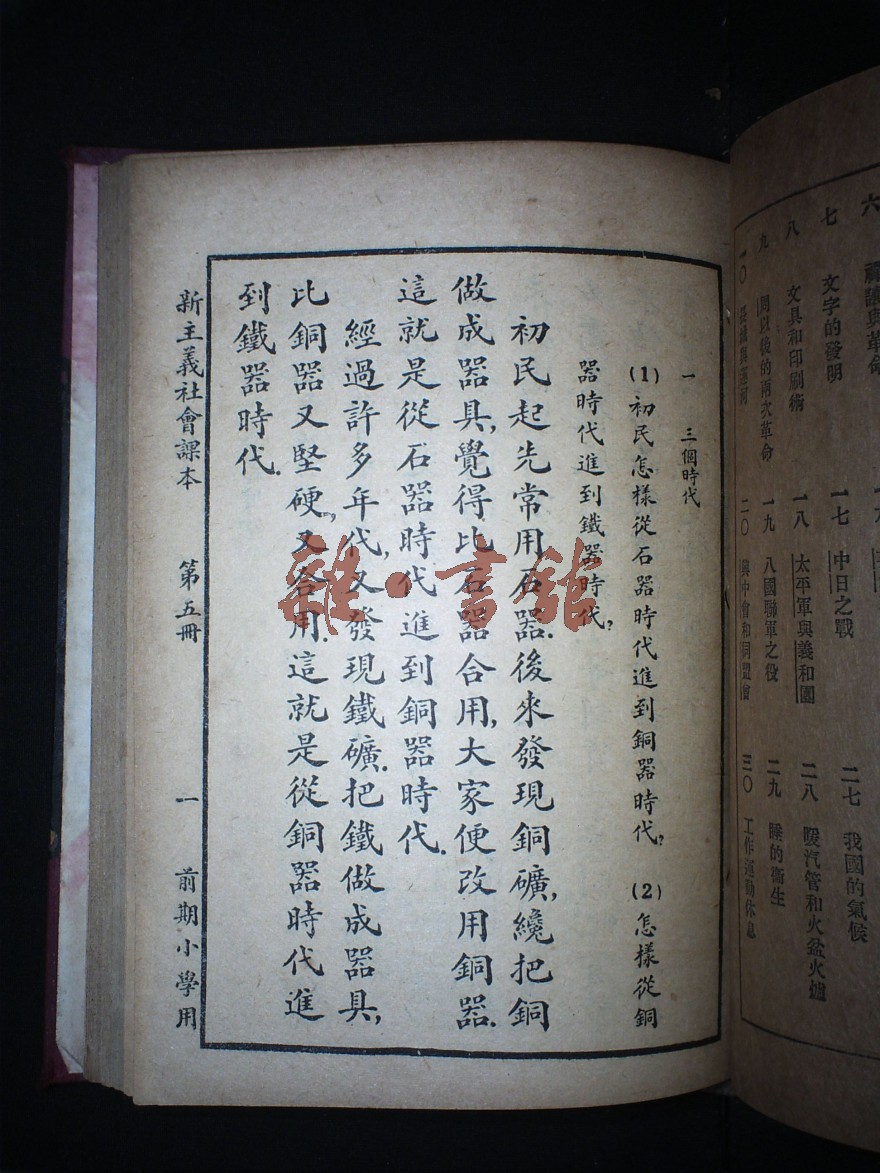 六 禪讓與革命
七 文字的發明
八 文具和印刷術
九 周以後的兩次革命
一〇 長城與運河
一七 中日之戰
一八 太平軍與義和團
一九 八國聯軍之役
二〇 興中會和同盟會
二七 我國的氣候
二八 暖汽管和火盆火爐
二九 睡的衞生
三〇 工作運動休息
一 三個時代
(1) 初民怎樣從石器時代進到銅器時代? (2) 怎樣從銅
器時代進到鐵器時代?
初民起先常用石器.後來發現銅礦,纔把銅
做成器具,覺得比石器合用,大家便改用銅器.
這就是從石器時代進到銅器時代.
經過許多年代,又發現鐵礦.把鐵做成器具,
比銅器又堅硬,又合用.這就是從銅器時代進
到鐵器時代.
新主義社會課本 第五冊 一 前期小學用
雜·書館